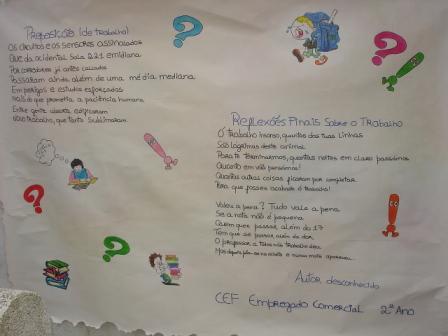 Proposição (do trabalho)
Os circuitos e os sensores assinalados
Que da ocidental Sala 221 emiliana
Por corredores já antes
Passaram ainda além de uma média mediana
Em perigos e estudos esforçados
mais do que prometia a paciência humana
Entre gente edificaram
novo trabalho, que tanto Sublimaram.
Reflexões Finais Sobre o Trabalho
Ó trabalho insonso, quantas das tuas linhas
São lágrimas deste animal
Para te terminarmos, quantas noites em claro passámos
Quanto em vão pensámos!
Quantas outras coisas ficaram por completar
Para que fosses acabado ó trabalho!
Valeu a pena? Tudo vale a pena
Se a nota não é pequena
Quem quer passar além do 17
Tem que se passar além da dor.
O professor a todos nós trabalho deu
Mas
Autor desconhecido
CEF Empregado Comercial 2º Ano